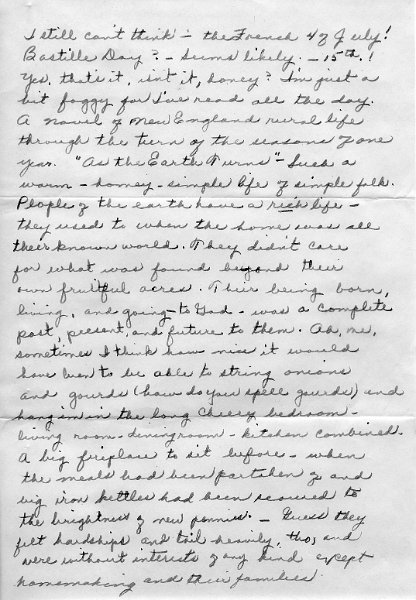 I still can't think - the French 4 of July!
Bastille Day? - Seems likely. - 15th.!
Yes, that's it, isn't it, honey? I'm just a
bit foggy for I've read all the day.
A novel of New England rural life
through the turn of the seasons of one
year. "As the Earth Turns" - Such a
warm - homey - simple life of simple folk.
People of the earth have a rich life -
they used to when the home was all
their known world. They didn't care
for what was found beyond their
own fruitful acres. Their being born,
living, and going to God - was a complete
past, present, and future to them. Ah, me,
sometimes I think how nice it would
have been to be able to string onions
and gourds (how do you spell gourds) and
hang 'em in the long cheery bedroom -
living room - diningroom - kitchen combined.
A big fireplace to sit before - when
the meals had been partaken of and
big iron kettles had been scoured to
the brightness of new pennies. - Guess they
felt hardships and toil heavily, tho, and
were without interests of any kind except
homemaking and their families.